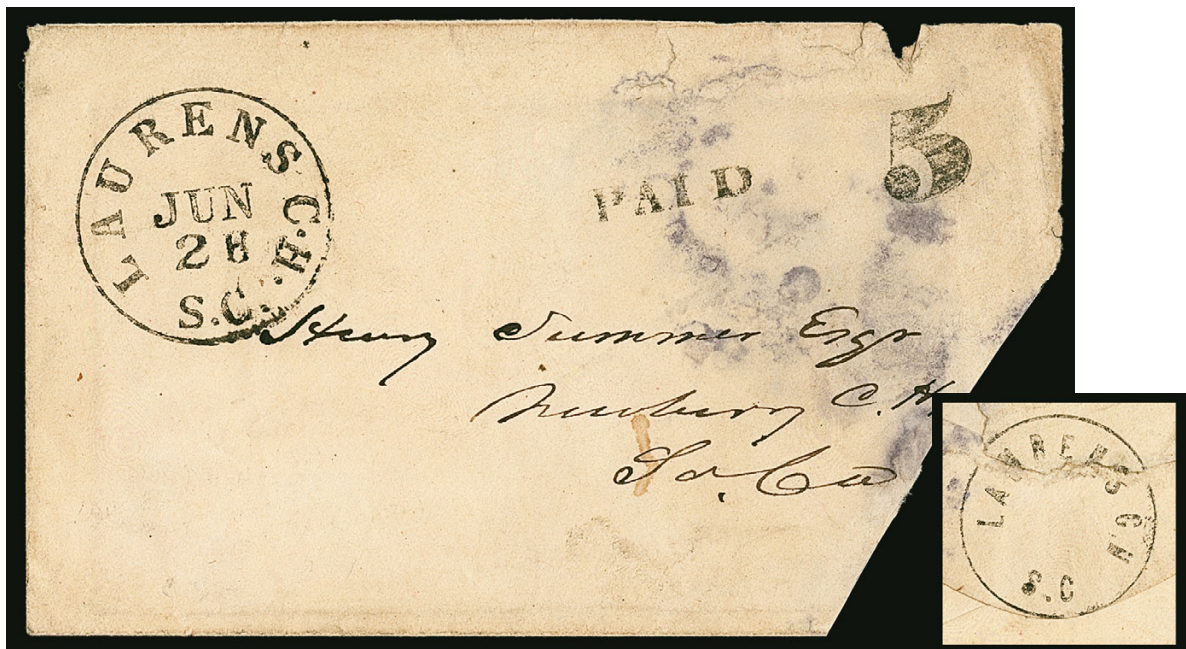 LAURENS C.H.
JUN
28
S.C.
PAID
5
Henry Summer Esqr
Newberry C. H.
So. Ca
LAURENS C.H
S.C